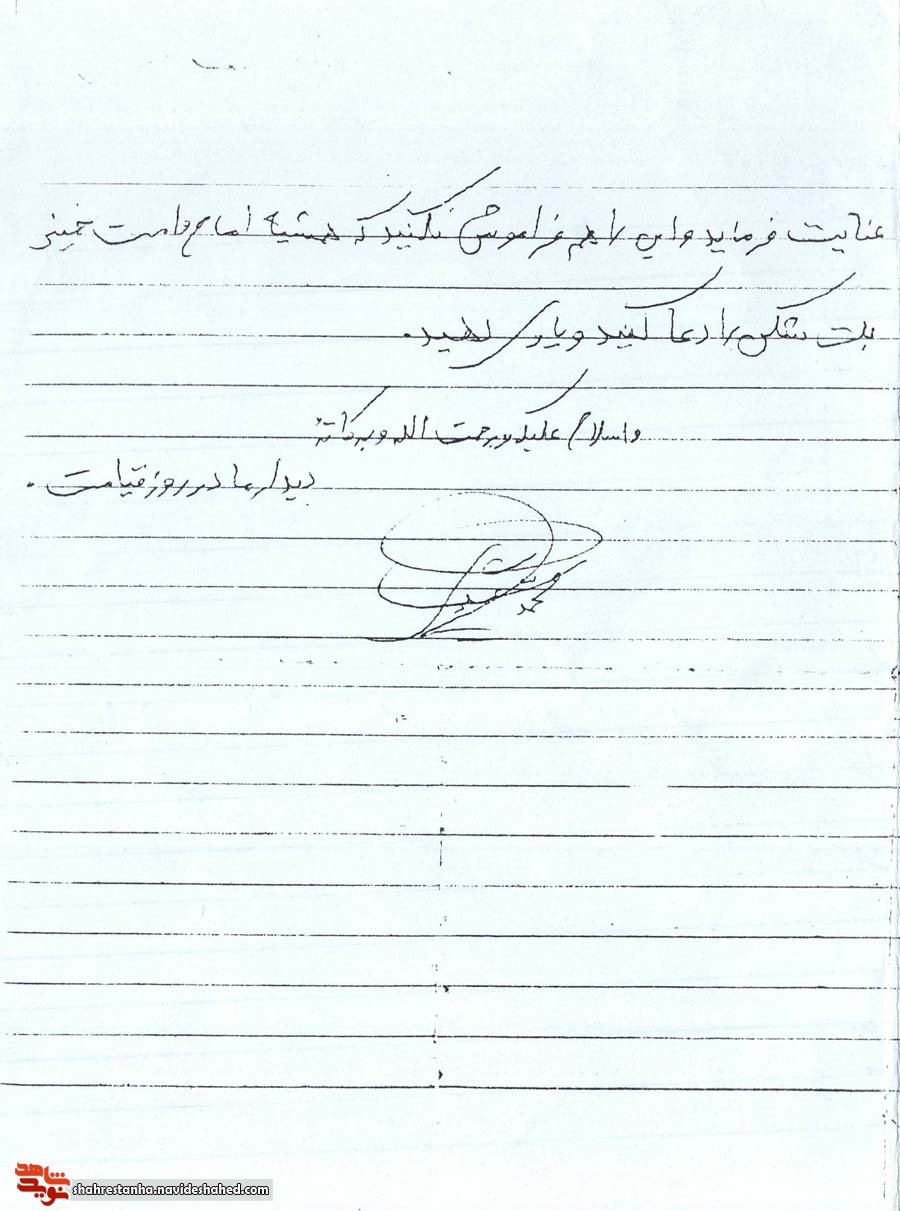 عنایت فرماید و این را هم فراموش نکنید که همشیه امام امت خمینی
بت شکن را دعا کنید و یاری دهید.
واسلام علیکم و رحمت الله و برکاته
دیدار ما در روز قیامت.
محمد
شاهد
نوید
shahrestanha.navideshahed.com